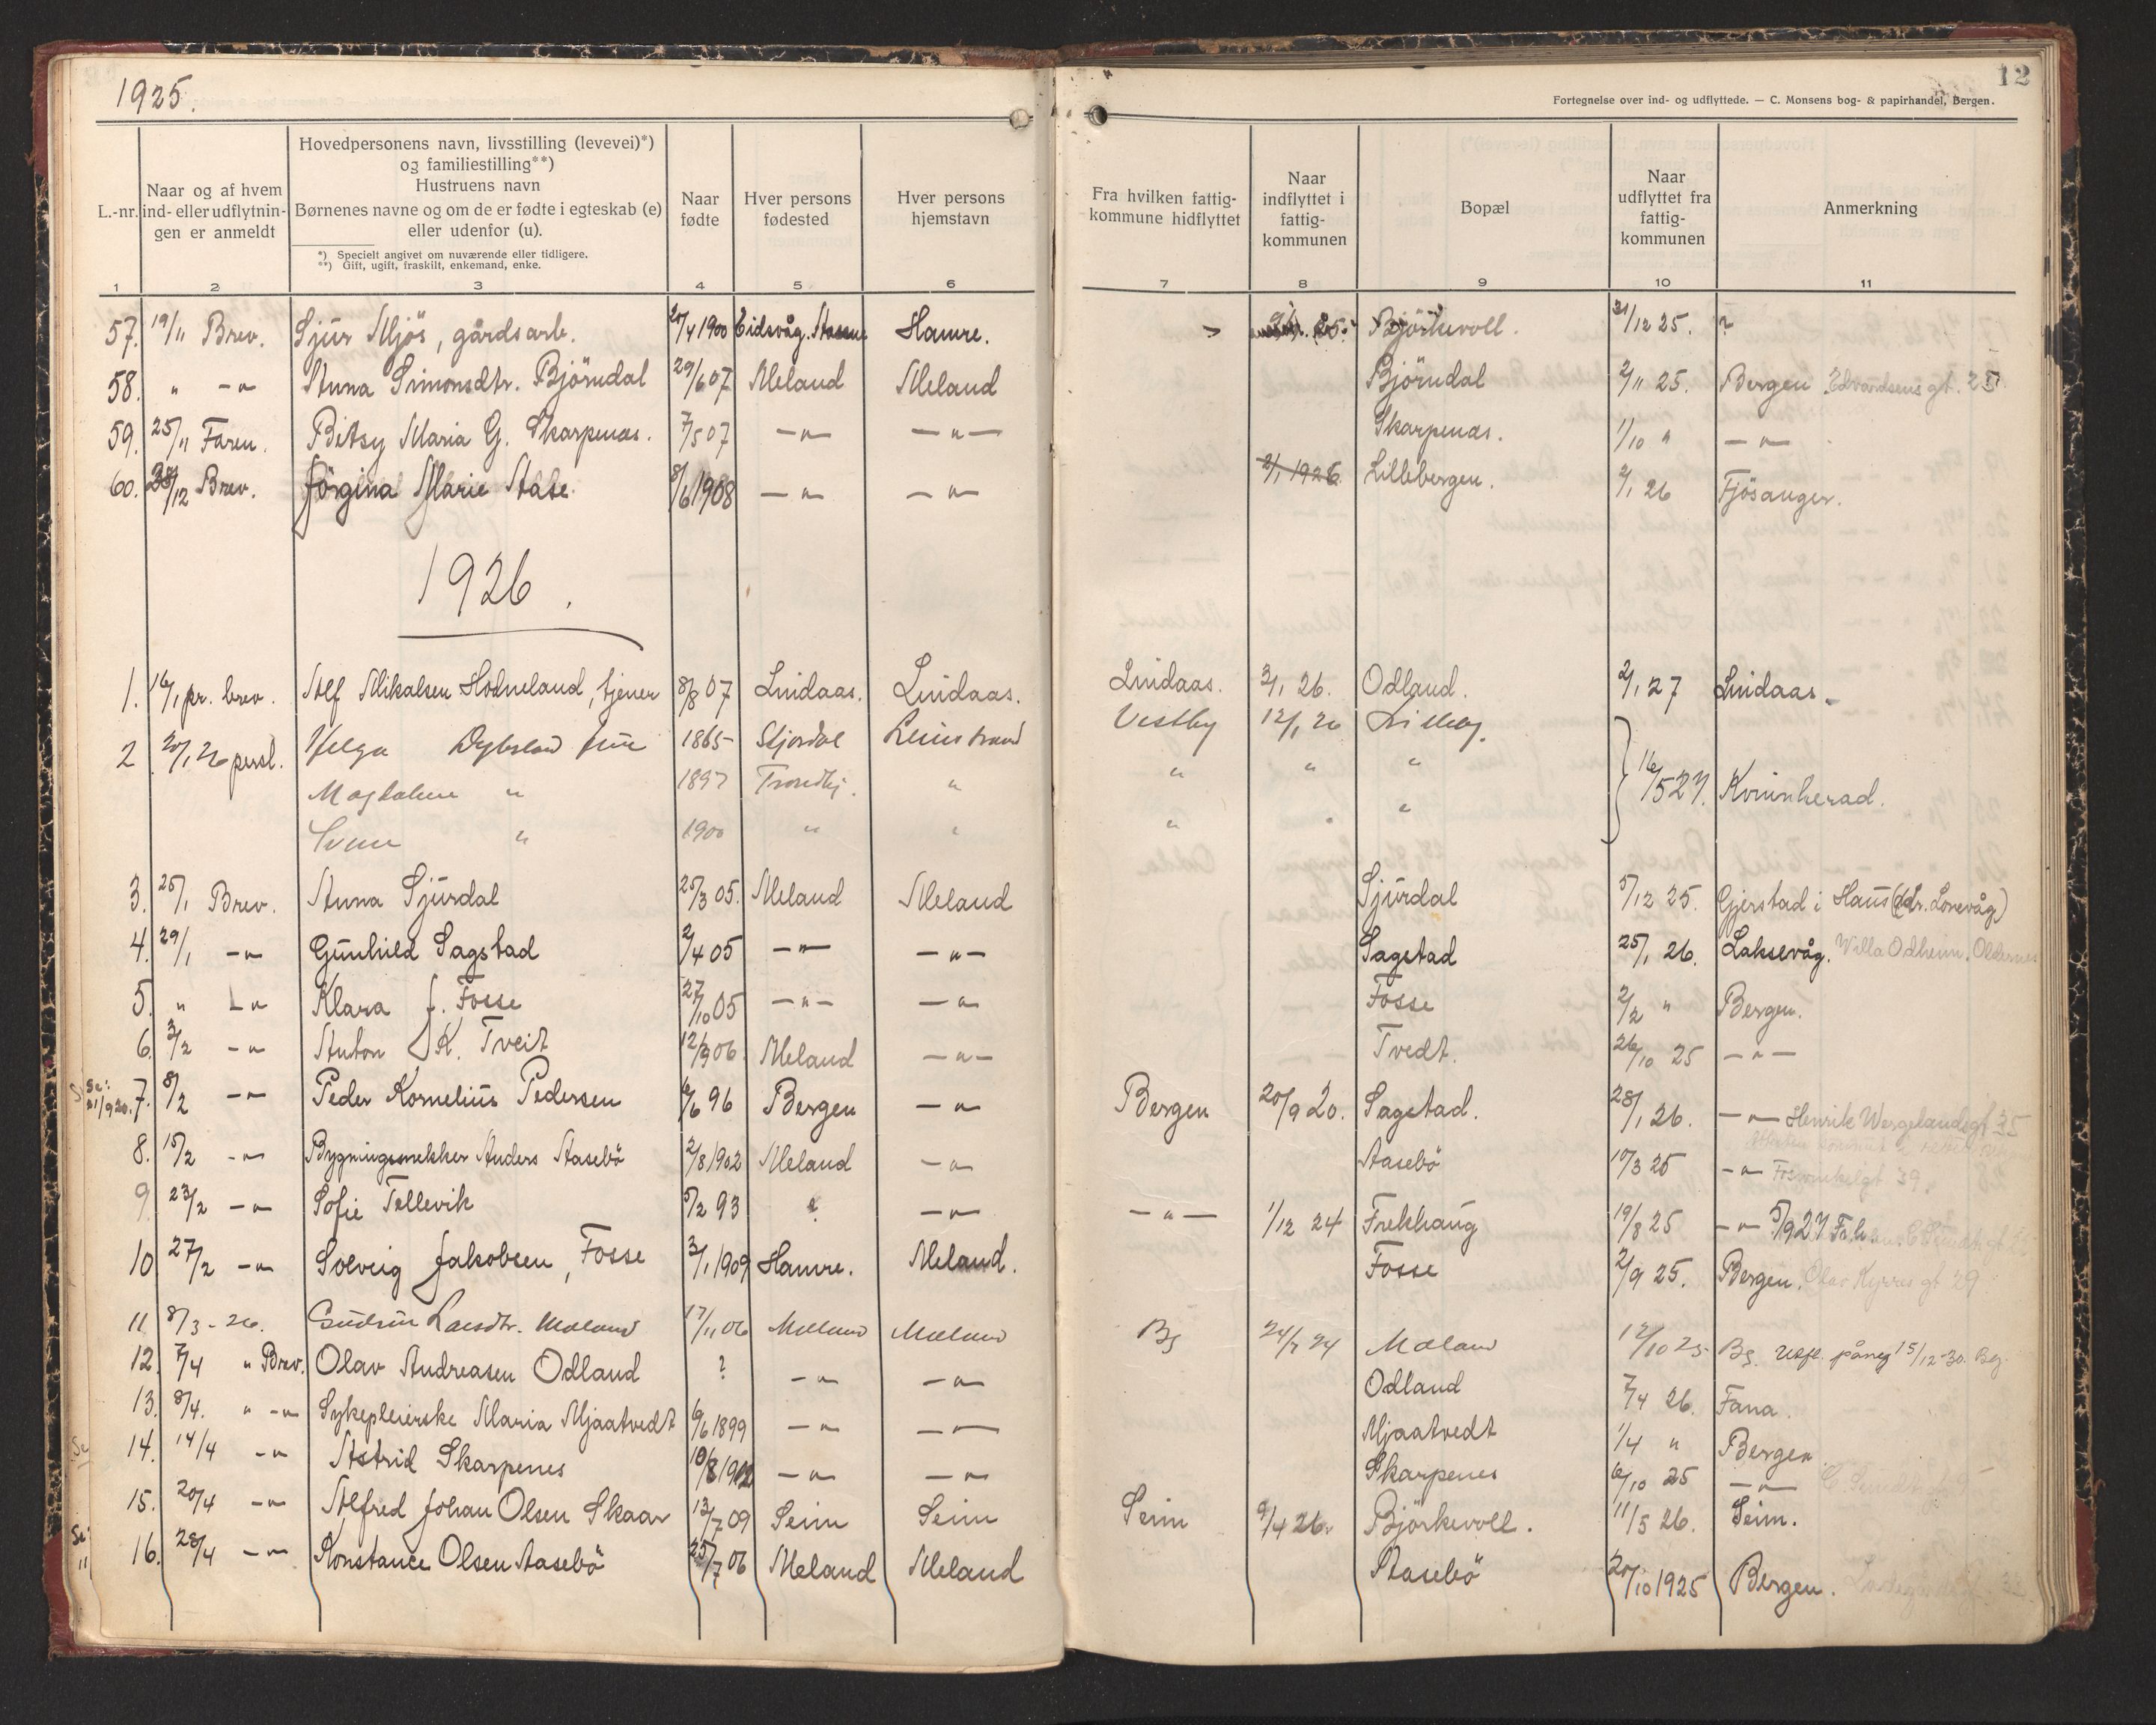 1925.
12
Fortegnelse over ind- og udflyttede. — C. Monsens bog- & papirhandel, Bergen.
L.-nr. Naar og af hvem ind- eller udflytningen er anmeldt
Hovedpersonens navn, livsstilling (levevei)*)
og familiestilling**)
Hustruens navn
Børnenes navne og om de er fødte i egteskab (e)
eller udenfor (u).
*) Specielt angivet om nuværende eller tidligere.
**) Gift, ugift, fraskilt, enkemand, enke.
Naar fødte
Hver persons fødested
Hver persons hjemstavn
Fra hvilken fattigkommune hidflyttet
Naar indflyttet i fattigkommunen
Bopæl
Naar udflyttet fra fattigkommunen
Anmerkning
1 2 3 4 5 6 7 8 9 10 11
57. 19/11 Brev. Sjur Mjös, gårdsarb. 20/4 1900 Eidsvåg. Hamre. Björkevoll. 31/12 25. ?
58. " -"- Anna Simonsdtr. Björndal 29/6 07 Meland Meland Björndal 2/11 25. Bergen Edvardsens gt. 25
59. 25/11 Faren. Betsy Maria G. Skarpenæs. 7/5 07 -"- -"- Skarpenæs. 1/10 " -"-
60. 28/12 Brev. Jörgina Marie Aase 8/6 1908 -"- -"- 2/1 1926 Lillebergen. 2/1 26 Fjösanger.
1926.
1. 16/1 pr. brev. Alf Mikalsen Hodneland, tjener 8/8 07 Lindaas. Lindaas. Lindaas. 2/1 26. Odland. 2/1 27 Lindaas.
2 20/1 26 persl. Helga 1865 Stjordal Leinstrand Vestby 12/1 26
Magdalene " 1897 Trondhj. " " " " 16/5 27. Kvinnherad.
" 1900 " " " "
3. 25/1 Brev. Anna Sjurdal 25/3 05. Meland Meland Sjurdal 5/12 25. Gjerstad i Haus (adr. Lonevåg)
4. 29/1 -"- Gunhild Sagstad 2/4 05 -"- -"- Sagstad 25/1 26. Laksevåg. Villa Odheim. Oldernes
5. " -"- Klara J. Fosse 27/10 05 -"- -"- Fosse 2/2 " Bergen.
6. 3/2 -"- Anton K. Tveit 12/9 06. Meland -"- Tvedt. 26/10 25 -"-
Se: 21/9 20. 7. 8/2 -"- Peder Kornelius Pedersen 6/6 96 Bergen -"- Bergen 20/9 20. Sagstad. 28/1 26. -"- Henrik Wergelandsgt 35
8. 15/2 -"- Bygningssnekker Anders Aasebö 2/8 1902 Meland -"- Aasebö 17/3 25 -"- Fosswinkelgt 39.
9. 23/2 -"- Sofie Tellevik 5/2 93 ? -"- -"- 1/12 24 Frekhaug 19/8 25 -"- 5/9 27
10 27/2 -"- Solveig Jakobsen, Fosse 3/1 1909 Hamre. Meland. Fosse 2/9 25. Bergen. Olav Kyrres gt 29
11 8/3 - 26. Gudrun Larsdtr. Mæland 17/11 06 Mæland Mæland Bg 24/7 24 Mæland 12/10 25. Bg. 15/12-30. Bg.
12. 7/4 " Brev. Olav Andreasen Odland ? -"- -"- Odland 7/4 26. Fana.
13. 8/4. " -"- Sykepleierske Maria Mjaatvedt 6/6 1899 -"- -"- Mjaatvedt 1/4 " Bergen
Se 14. 14/4 -"- Astrid Skarpenes 10/8 1902 -"- -"- Skarpenes 6/10 25 -"-
15. 20/4 -"- Alfred Johan Olsen Skaar 13/7 09 Seim Seim Seim 9/4 26. Björkevoll. 11/5 26. Seim.
Se: " 16. 28/4 -"- Konstance Olsen Aasebö 25/7 06 Meland Meland Aasebö 20/10 1925 Bergen.